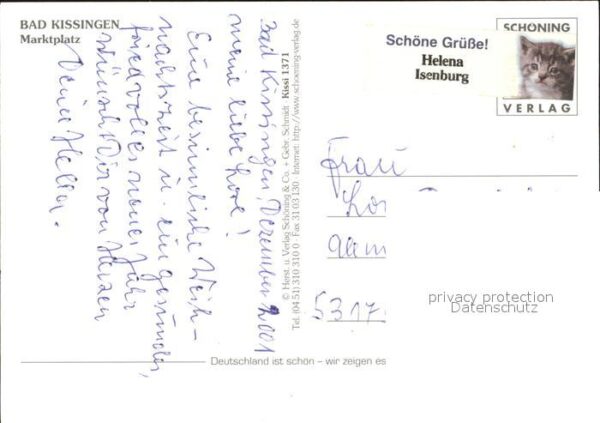 BAD KISSINGEN
Marktplatz
Bad Kissingen, Dezember 2001
meine liebe Lore!
Eine besinnliche Weih-
nachtszeit u. ein gesundes,
friedvolles neues Jahr
wünscht Dir von Herzen
Deine Helena.
© Herst. u. Verlag Schöning & Co. + Gebr. Schmidt Kissi 1371
Tel. (04 51) 310 310 0 · Fax 31 03 130 · Internet: http://www.schoening-verlag.de
Schöne Grüße!
Helena
Isenburg
SCHÖNING
VERLAG
Frau
Lor
Alem
5317
privacy protection
Datenschutz
Deutschland ist schön – wir zeigen es